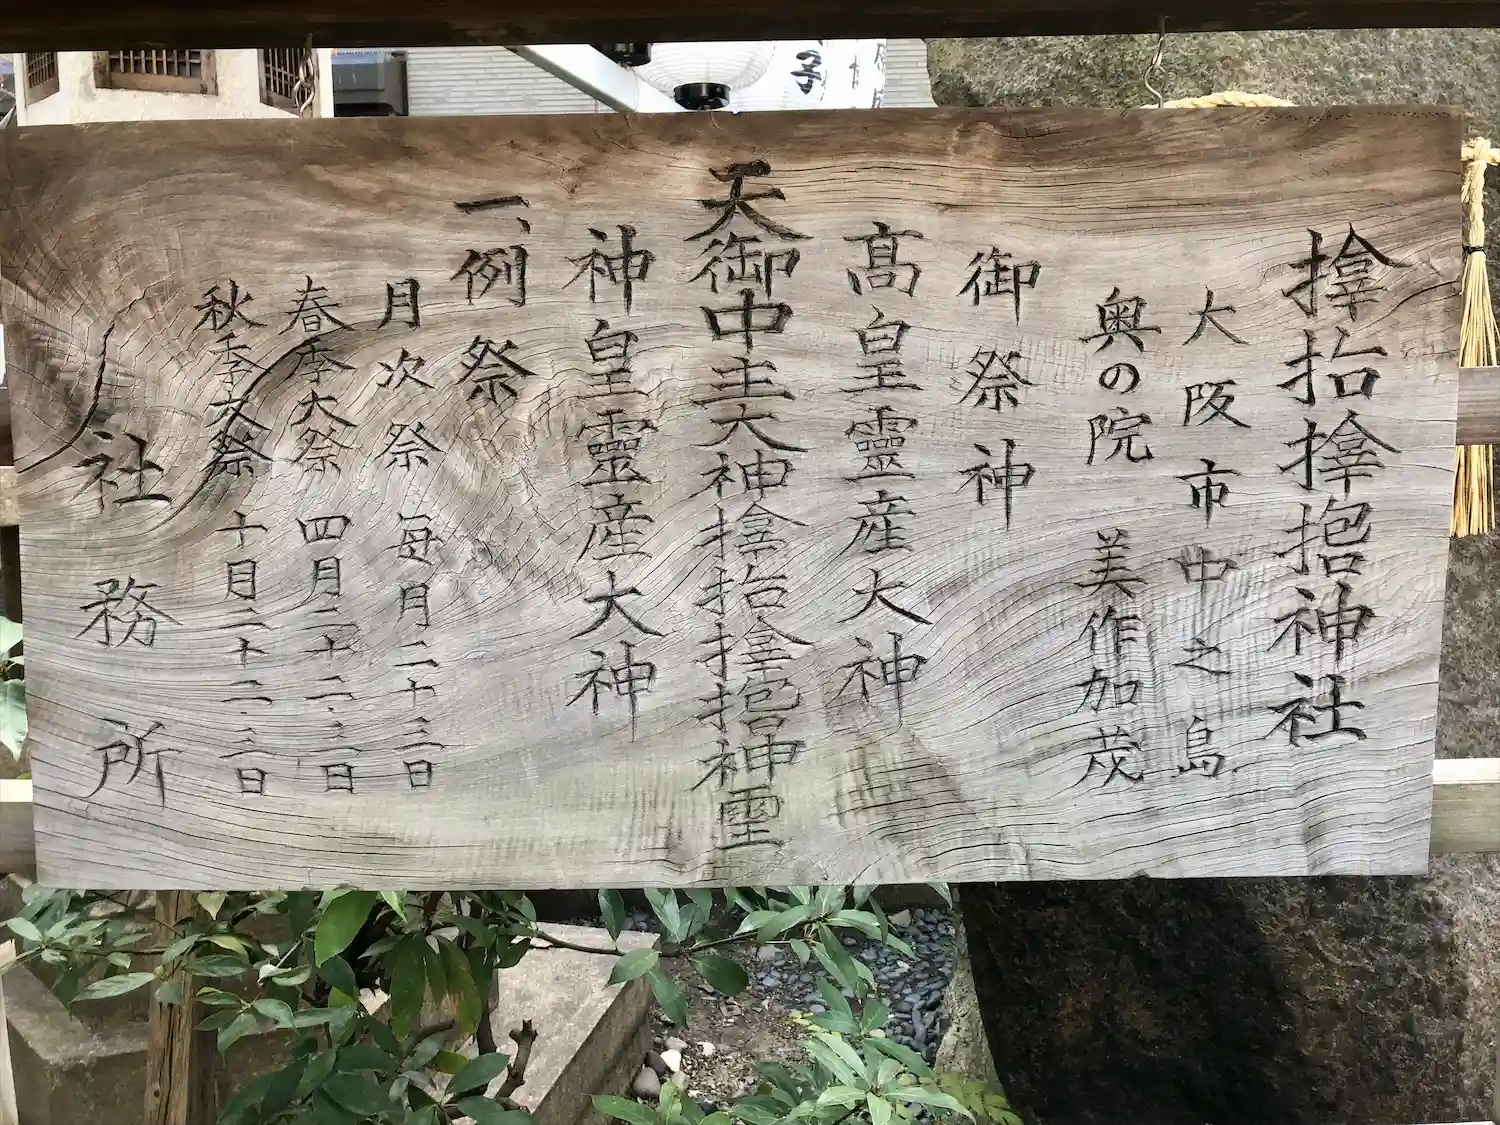 𪮷𫝓𪮇𫝘神社
大阪市中之島
奥の院 美作加茂
御祭神
髙皇靈産大神
天御中主大神𪮷𫝓𪮇𫝘神霊
神皇靈産大神
一、例祭
月次祭 毎月二十三日
春季大祭 四月二十二・三日
秋季大祭 十月二十二・三日
社務所
子